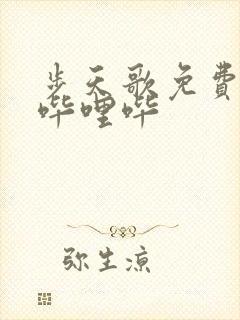 步天歌免费
哔哩哔
弥生凉